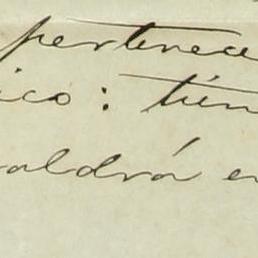 pertenece
ico: tien
aldrá en